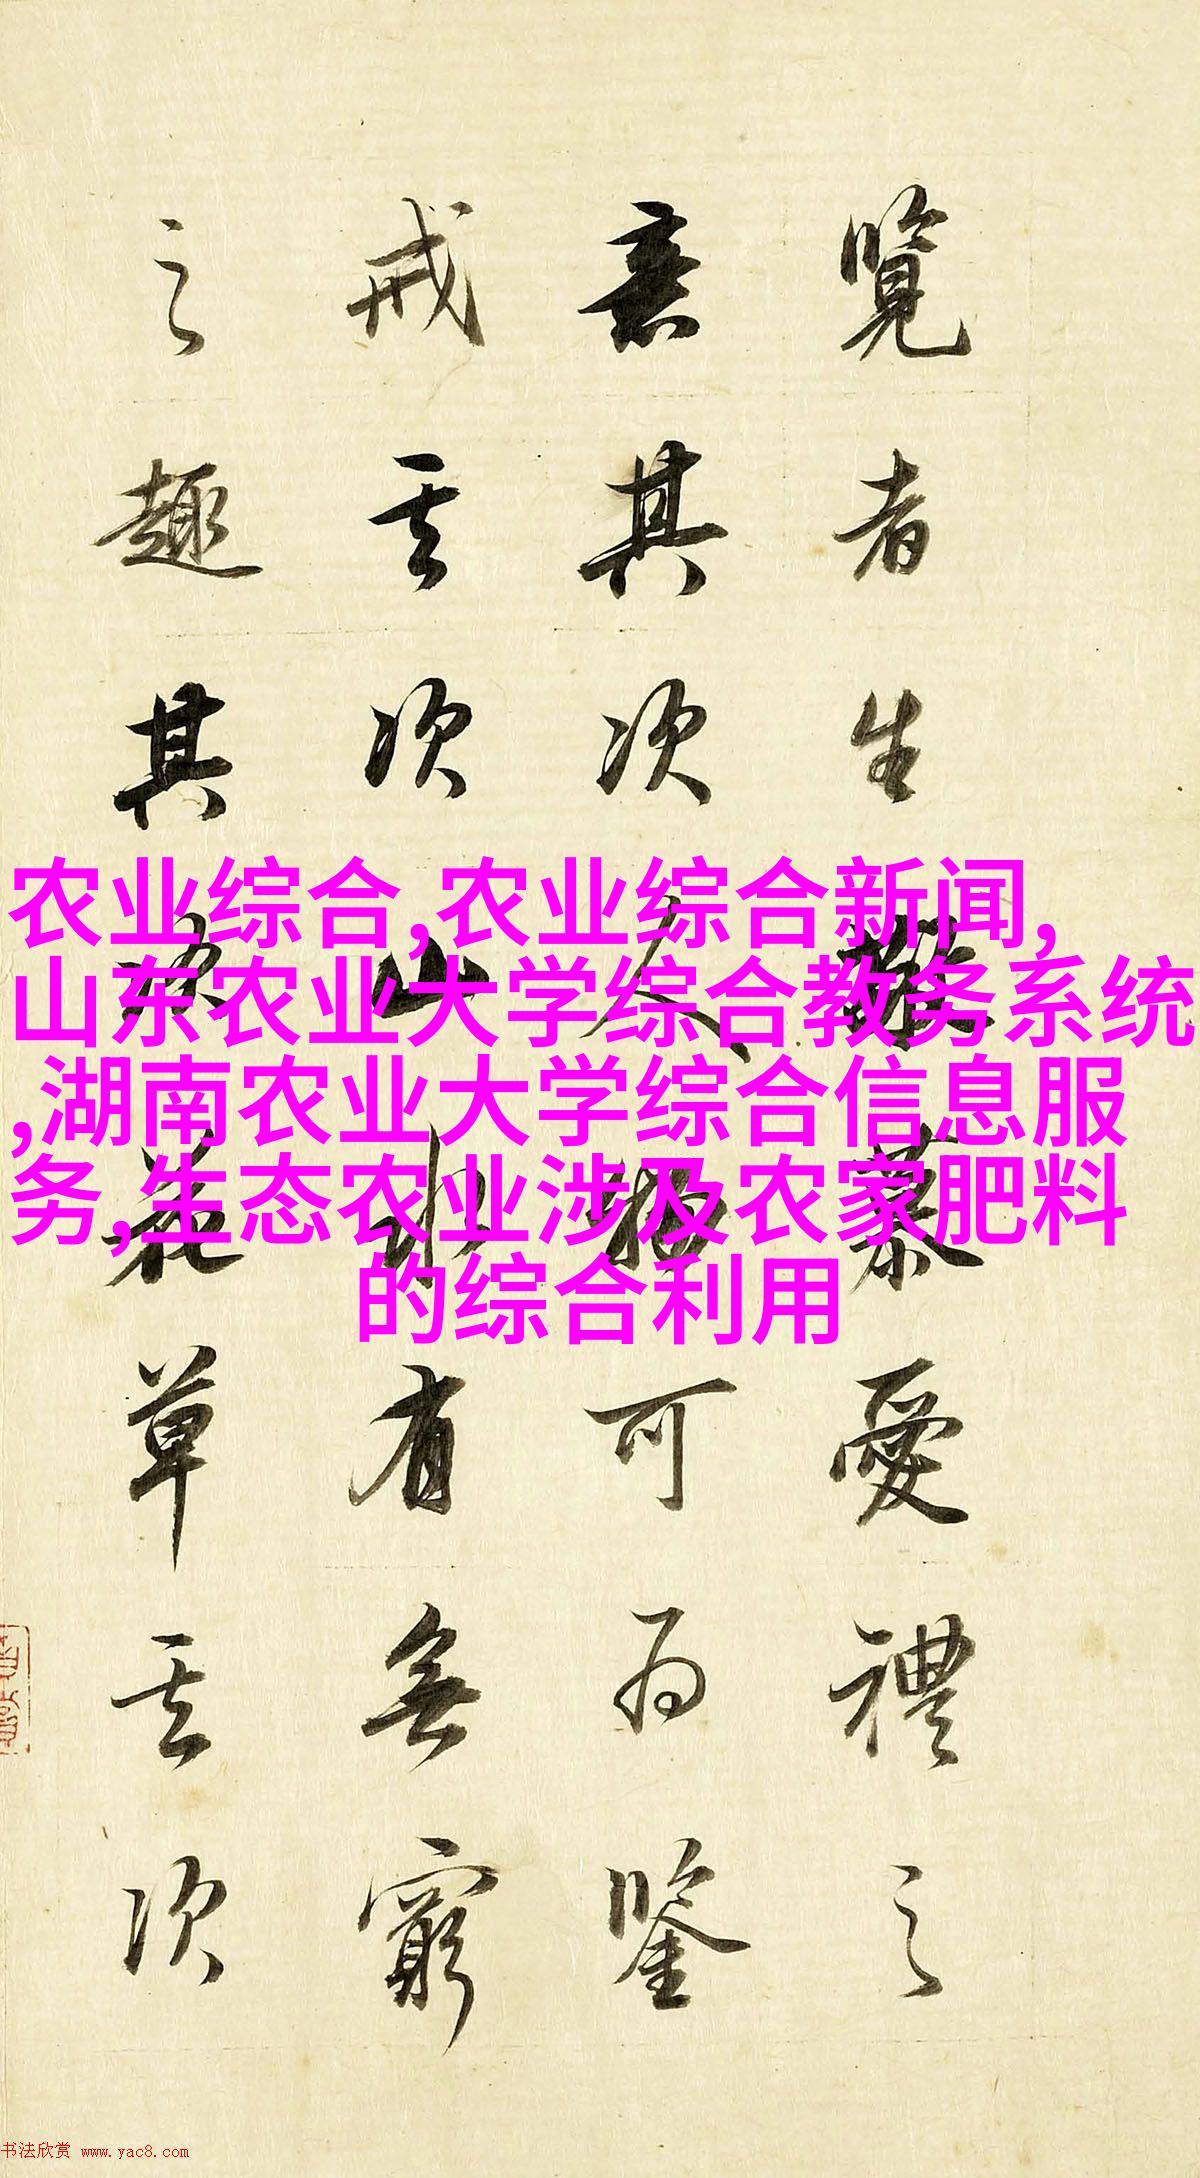 覽者生慕愛禮之
意其次人物可為鑒
戒其次山水有無窮
之趣其次花草其次
农业综合,农业综合新闻,
山东农业大学综合教务系统
,湖南农业大学综合信息服
务,生态农业涉及农家肥料
的综合利用
书法欣赏 www.yac8.com